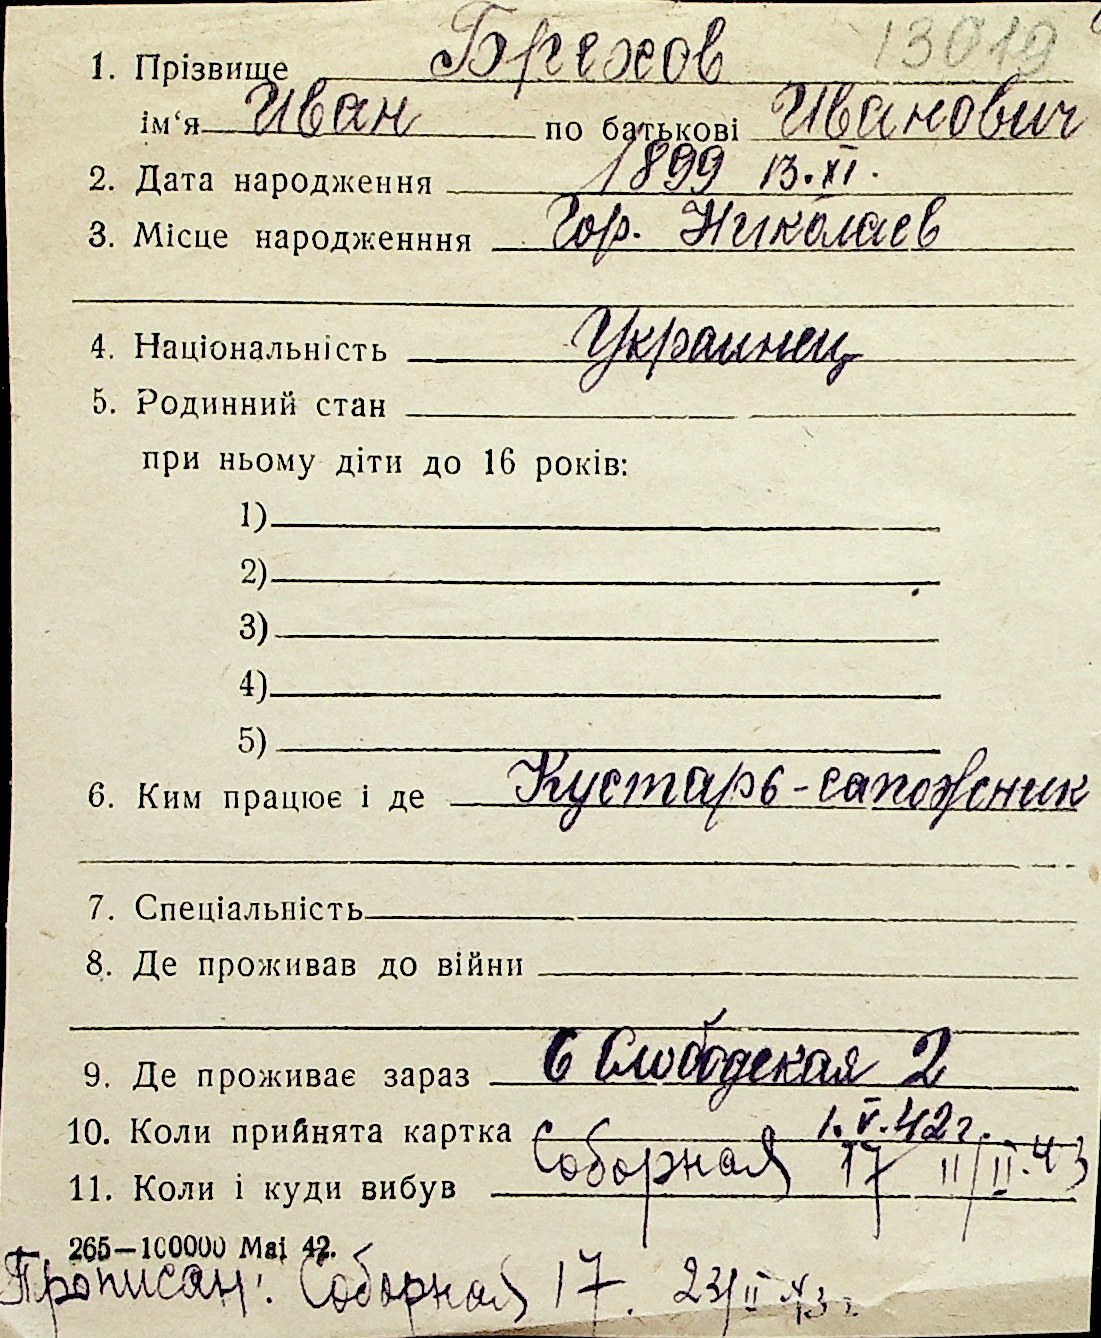 13019
1. Прізвище Брехов
ім'я Иван по батькові Иванович
2. Дата народження 1899 13.XI.
3. Місце народженння Гор. Николаев
4. Національність Украинец
5. Родинний стан
при ньому діти до 16 років:
1)
2)
3)
4)
5)
6. Ким працює і де Кустарь-сапожник
7. Спеціальність
8. Де проживав до війни
9. Де проживає зараз 6 Слободская 2
10. Коли прийнята картка 1.V.42 г.
11. Коли і куди вибув Соборная 17 11/II.43
265—100000 Mai 42.
Прописан: Соборная 17. 23/II 43 г.